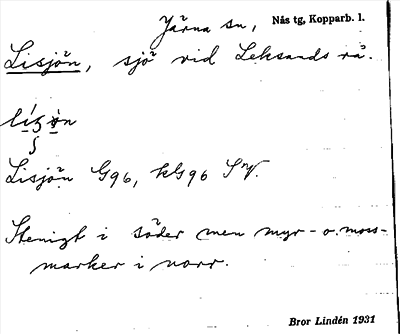 Järna sn, Nås tg, Kopparb. l.
Lisjön, sjö vid Leksands rå.
Lisjön G96, kG96 SnV.
Stenigt i söder men myr- o. moss-
marker i norr.
Bror Lindén 1931